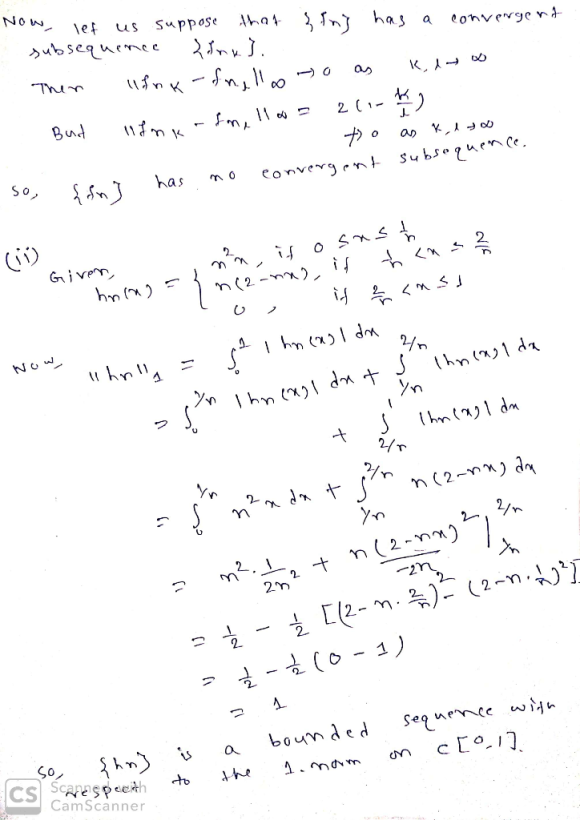 Now, let us suppose that {fn} has a convergent
subsequence {fnk}.
Then ||fnk - fnl||∞ → 0 as k, l → ∞
But ||fnk - fnl||∞ = 2(1 - k/l)
↛ 0 as k, l → ∞
So, {fn} has no convergent subsequence.
(ii) Given,
hn(x) = { n²x, if 0 ≤ x ≤ 1/n
n(2-nx), if 1/n < x ≤ 2/n
0, if 2/n < x ≤ 1
Now ||hn||1 = ∫₀¹ |hn(x)| dx
= ∫₀^1/n |hn(x)| dx + ∫_1/n^2/n |hn(x)| dx
+ ∫_2/n^1 |hn(x)| dx
= ∫₀^1/n n²x dx + ∫_1/n^2/n n(2-nx) dx
= n² · 1/2n² + n(2-nx)²/-2n |_1/n^2/n
= 1/2 - 1/2 [(2-n·2/n)² - (2-n·1/n)²]
= 1/2 - 1/2 (0-1)
= 1
So, {hn} is a bounded sequence with
respect to the 1-norm on C[0,1].
CS Scanned with
CamScanner